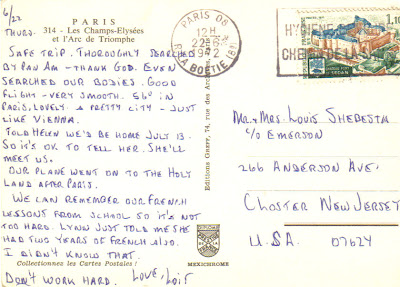 6/22
THURS.
PARIS
314 - Les Champs-Elysées
et l'Arc de Triomphe
SAFE TRIP. THOROUGHLY SEARCHED
BY PAN AM - THANK GOD. EVEN
SEARCHED OUR BODIES. GOOD
FLIGHT - VERY SMOOTH. 56° IN
PARIS. LOVELY & PRETTY CITY - JUST
LIKE VIENNA.
TOLD HELEN WE'D BE HOME JULY 13.
SO IT'S OK TO TELL HER. SHE'LL
MEET US.
OUR PLANE WENT ON TO THE HOLY
LAND AFTER PARIS.
WE CAN REMEMBER OUR FRENCH
LESSONS FROM SCHOOL SO IT'S NOT
TOO HARD. LYNN JUST TOLD ME SHE
HAD TWO YEARS OF FRENCH ALSO.
I DIDN'T KNOW THAT.
Collectionnez les Cartes Postales !
DON'T WORK HARD. LOVE, LOIS
Editions GUERY, 74, rue des
MEXICHROME
PARIS 08
12H
22-6
1972
R. LA BOETIE (8e)
1,10
SEDAN
MR. & MRS. LOUIS SHEBESTA
C/O EMERSON
266 ANDERSON AVE.
CLOSTER NEW JERSEY
U.S.A. 07624